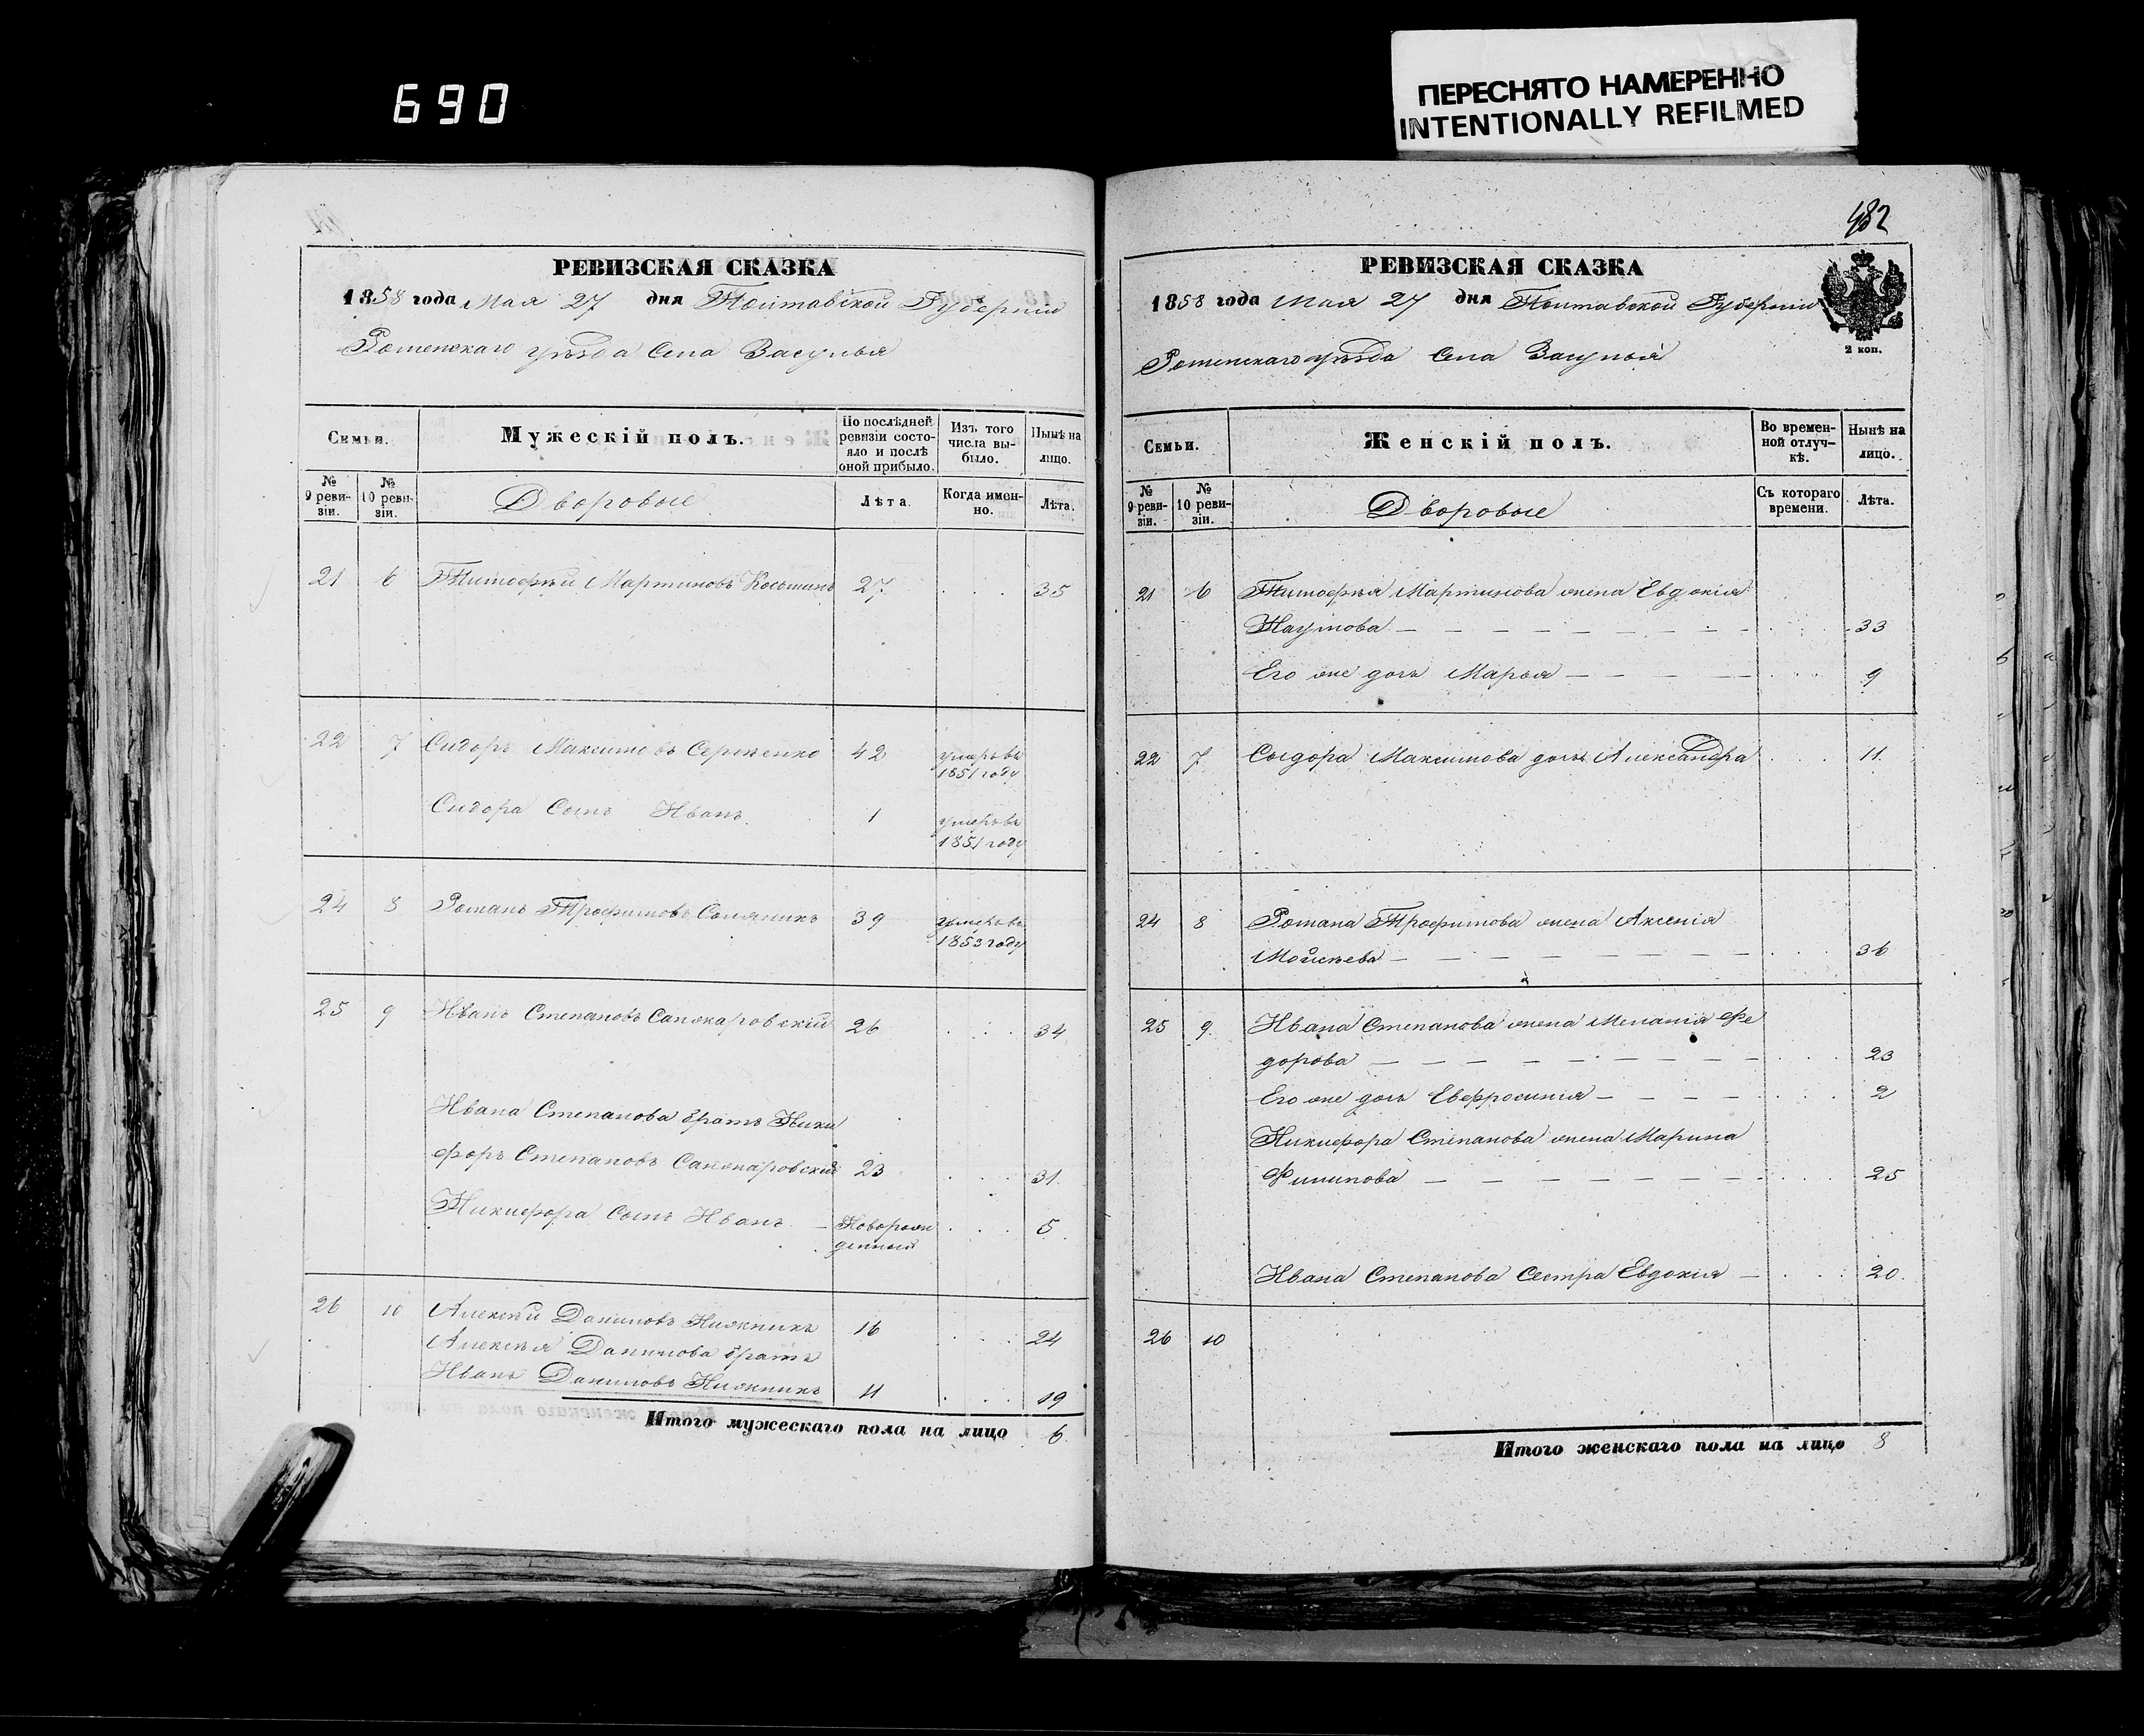 690
ПЕРЕСНЯТО НАМЕРЕННО
INTENTIONALLY REFILMED
РЕВИЗСКАЯ СКАЗКА
1858 года Мая 27 дня Полтавской Губерніи
Роменскаго уѣзда Села Засулья
Семьи.
Мужескій полъ.
По послѣдней ревизіи состояло и послѣ оной прибыло.
Изъ того числа выбыло.
Нынѣ на лицо.
№ 9 ревизіи.
№ 10 ревизіи.
Дворовые
Лѣта.
Когда именно.
Лѣта.
21 6 Тимофѣй Мартиновъ 27 . . . 35
22 7 Сидоръ Максимовъ Сергѣенко 42 умеръ въ 1851 году
Сидора Сынъ Иванъ 1 умеръ въ 1851 году
24 8 Романъ Трофимовъ Соляникъ 39 умеръ въ 1853 году
25 9 Иванъ Степановъ Сапожаровскій 26 . . . 34
Ивана Степанова братъ Ники
форъ Степановъ Сапожаровскій 23 . . . 31
Никифора Сынъ Иванъ – Новорож . . . 5
денный
26 10 Алексѣй Даниловъ Нижникъ 16 . . . 24
Алексѣя Данилова братъ
Иванъ Даниловъ Нижникъ 11 . . . 19
Итого мужескаго пола на лицо 6
482
РЕВИЗСКАЯ СКАЗКА
1858 года Мая 27 дня Полтавской Губерніи
2 коп.
Роменскаго уѣзда Села Засулья
Семьи.
Женскій полъ.
Во временной отлучкѣ.
Нынѣ на лицо.
№ 9 ревизіи.
№ 10 ревизіи.
Дворовые
Съ котораго времени.
Лѣта.
21 6 Тимофѣя Мартинова жена Евдокія
Наумова – – – – – – – – . . . 33
Его же дочь Марья – – – – – . . . 9
22 7 Сыдора Максимова дочь Александра . . . 11
24 8 Романа Трофимова жена Аксенія
Мойсѣева – – – – – – – – . . . 36
25 9. Ивана Степанова жена Меланія Фе
дорова – – – – – – – – . . . 23
Его же дочь Евфросинія – – – – . . . 2
Никифора Степанова жена Марина
Филипова – – – – – – – – . . . 25
Ивана Степанова Сестра Евдокія – . . . 20.
26 10
Итого женскаго пола на лицо 8